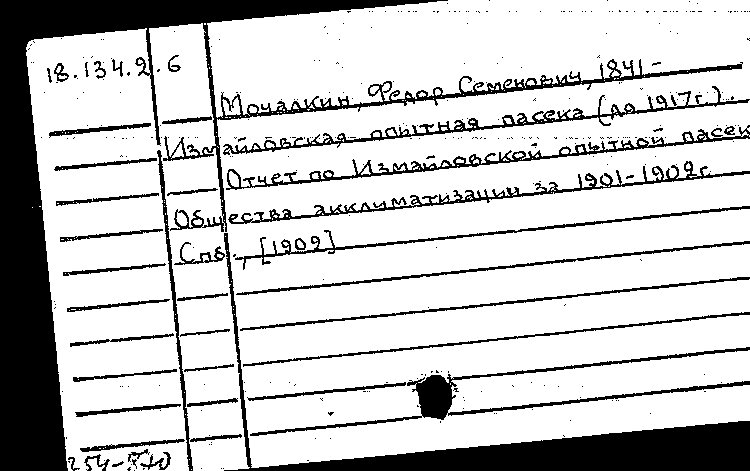 18.134.2.6
Мочалкин, Федор Семенович, 1841-
Измайловская опытная пасека (до 1917г.).
Отчет по Измайловской опытной пасек
Общества акклиматизации за 1901-1902г.
Спб., [1902]
254-870